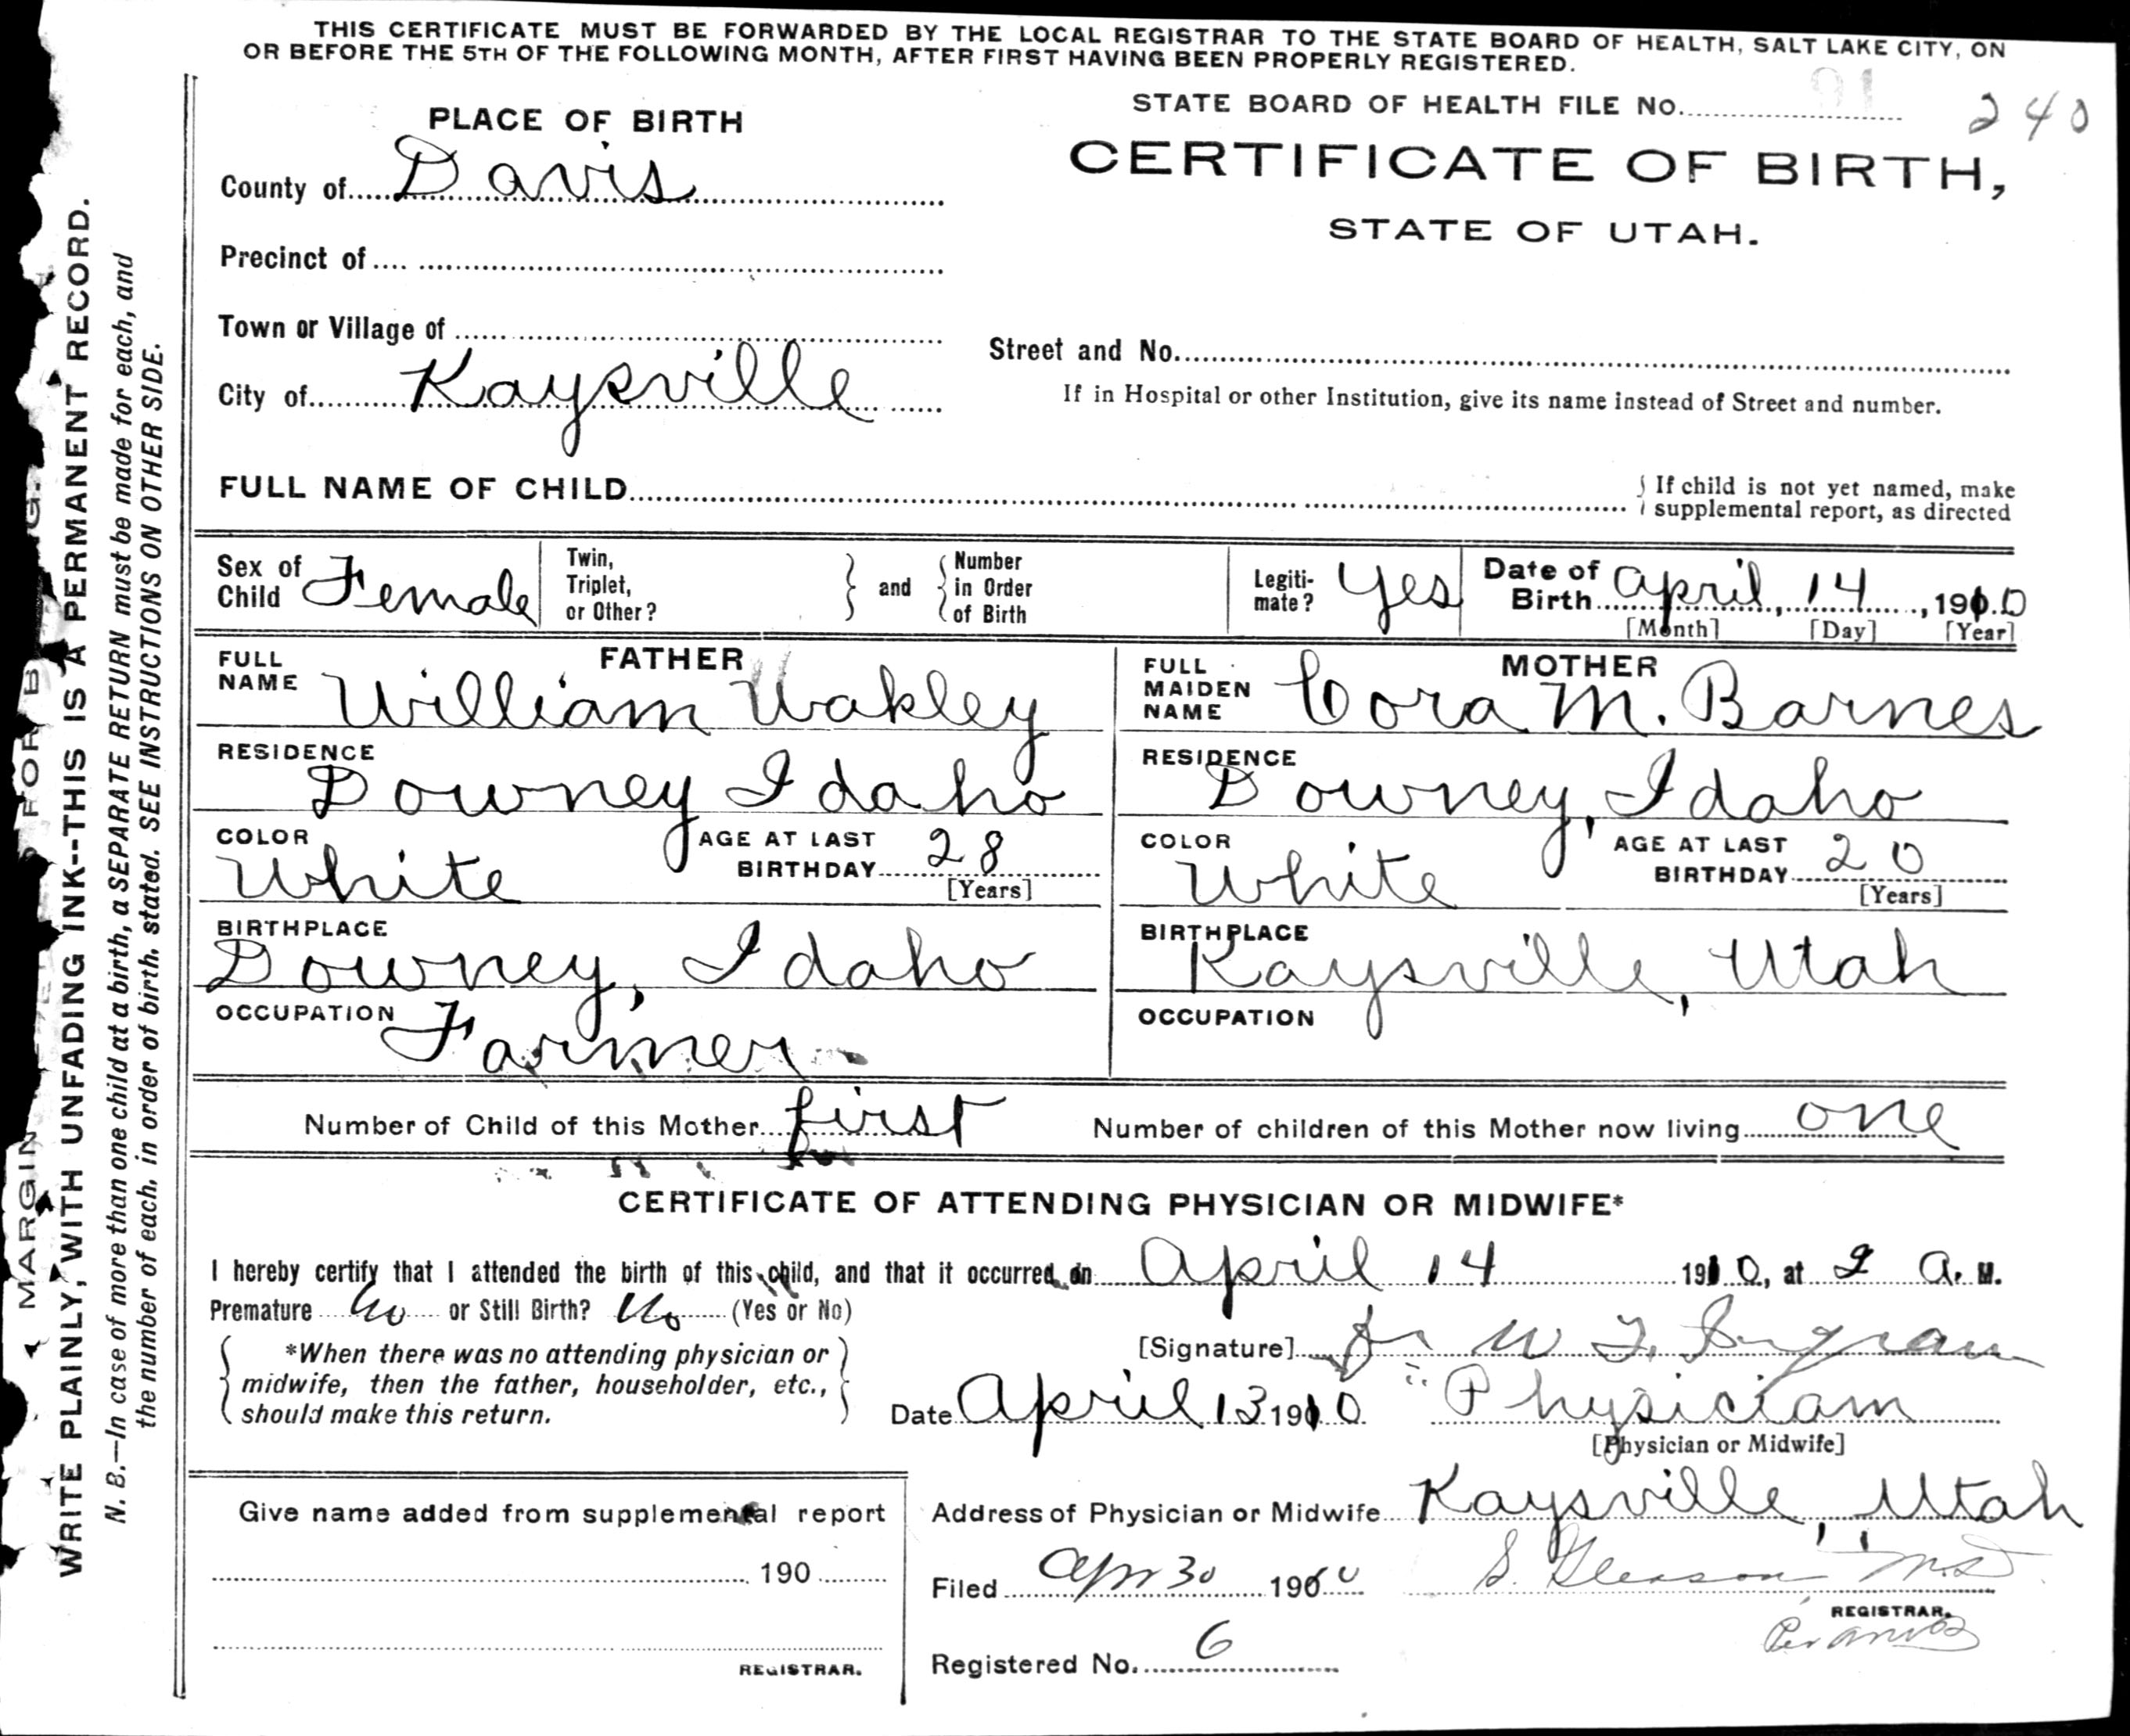 THIS CERTIFICATE MUST BE FORWARDED BY THE LOCAL REGISTRAR TO THE STATE BOARD OF HEALTH, SALT LAKE CITY, ON
OR BEFORE THE 5TH OF THE FOLLOWING MONTH, AFTER FIRST HAVING BEEN PROPERLY REGISTERED.
STATE BOARD OF HEALTH FILE No. 91 240
PLACE OF BIRTH
CERTIFICATE OF BIRTH,
STATE OF UTAH.
County of Davis
Precinct of
Town or Village of
Street and No.
City of Kaysville
If in Hospital or other Institution, give its name instead of Street and number.
FULL NAME OF CHILD
If child is not yet named, make
supplemental report, as directed
Sex of Child Female
Twin, Triplet, or Other?
and
Number in Order of Birth
Legiti-mate? Yes
Date of Birth April 14, 1910
[Month] [Day] [Year]
FATHER
FULL NAME William Wakley
RESIDENCE
Downey Idaho
COLOR White
AGE AT LAST BIRTHDAY 28
[Years]
BIRTHPLACE
Downey, Idaho
OCCUPATION
Farmer
MOTHER
FULL MAIDEN NAME Cora M. Barnes
RESIDENCE
Downey, Idaho
COLOR White
AGE AT LAST BIRTHDAY 20
[Years]
BIRTHPLACE
Kaysville, Utah
OCCUPATION
Number of Child of this Mother first
Number of children of this Mother now living one
CERTIFICATE OF ATTENDING PHYSICIAN OR MIDWIFE*
I hereby certify that I attended the birth of this child, and that it occurred on April 14 1910, at 2 A. M.
Premature No or Still Birth? No (Yes or No)
*When there was no attending physician or
midwife, then the father, householder, etc.,
should make this return.
[Signature] Dr W. F. Ingram
Date April 13 1910 Physician
[Physician or Midwife]
Give name added from supplemental report
190
REGISTRAR.
Address of Physician or Midwife Kaysville, Utah
Filed Apr 30 1910 S. Gleason M.D
REGISTRAR.
Per
Registered No. 6
MARGIN FOR B G.
WRITE PLAINLY, WITH UNFADING INK--THIS IS A PERMANENT RECORD.
N. B.—In case of more than one child at a birth, a SEPARATE RETURN must be made for each, and
the number of each, in order of birth, stated. SEE INSTRUCTIONS ON OTHER SIDE.